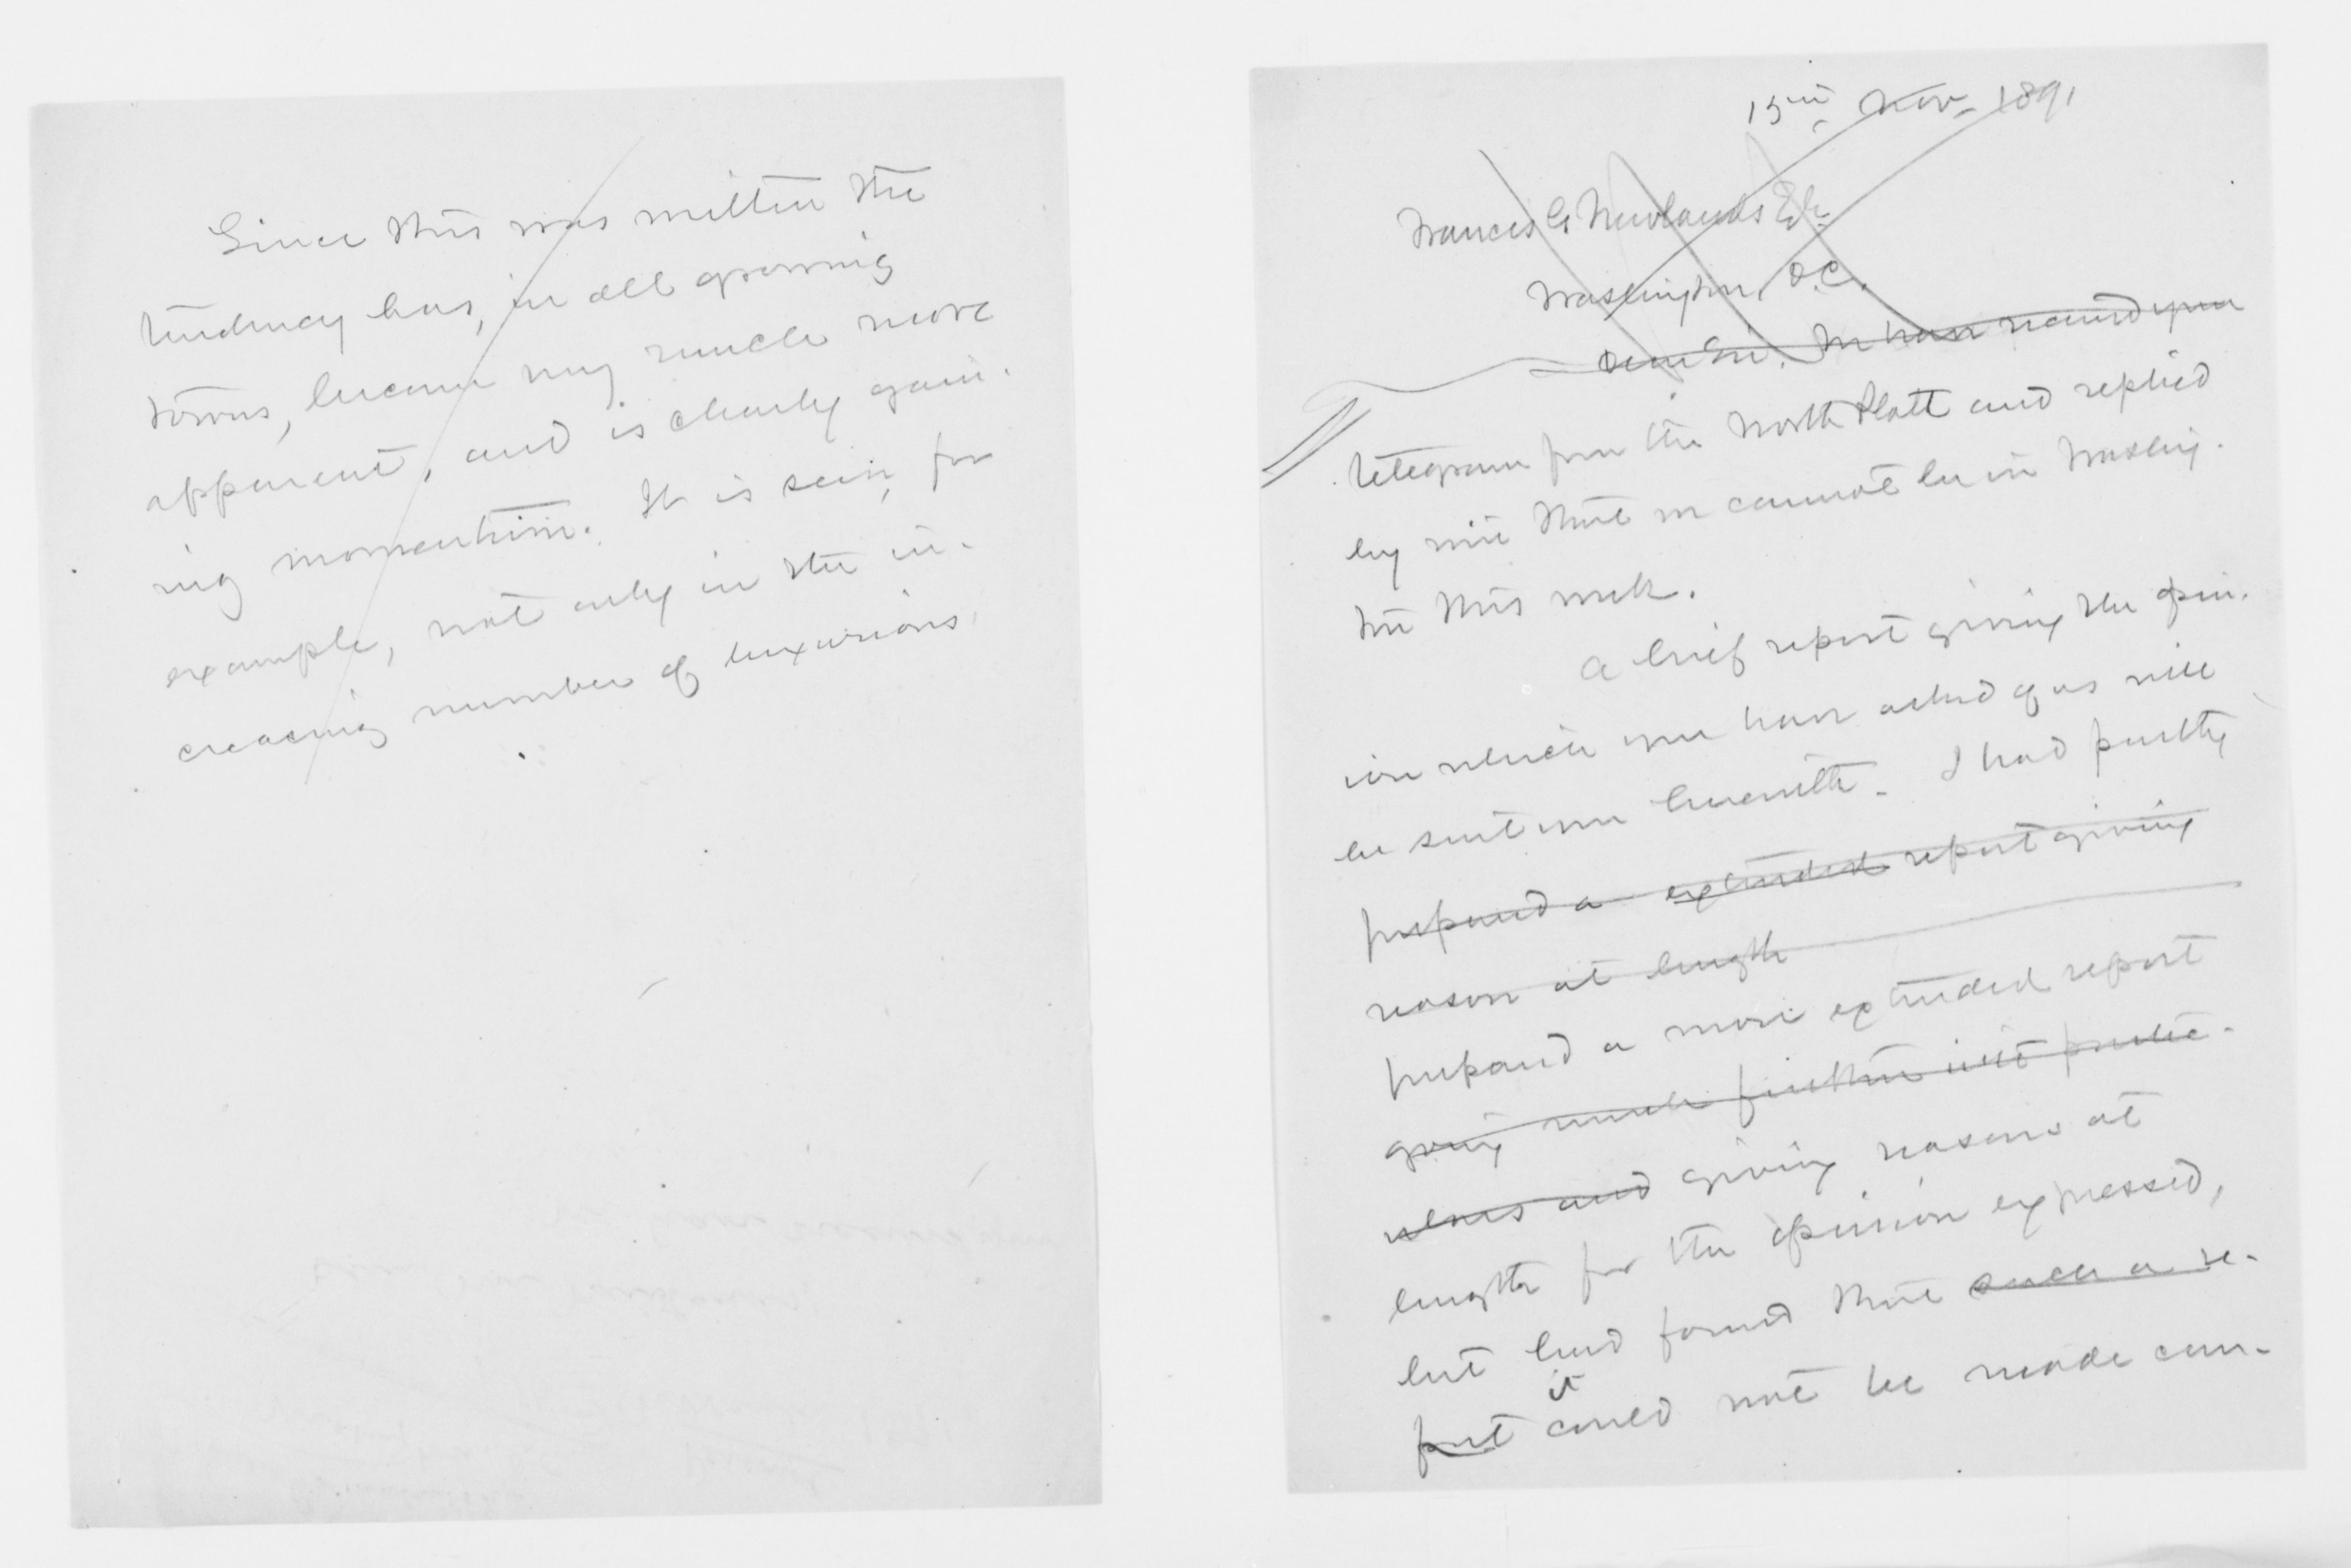 Since this was written the
tendency has, in all growing
towns, become very much more
apparent, and is clearly gain-
ing momentum. It is seen, for
example, not only in the in-
creasing number of luxurious,
15th Nov. 1891
Francis G Newlands Esq.
Washington, D.C.
Dear Sir. We have received your
telegram from the North Platt and replied
by wire that we cannot be in Washing-
ton this week.
A brief report giving the opin-
ion which you have asked of us will
be sent you herewith. I had partly
prepared a extended report giving
reason at length
prepared a more extended report
going much further into
and giving reasons at
length for the opinion expressed,
but had found that such a re-
port it could not be made com-